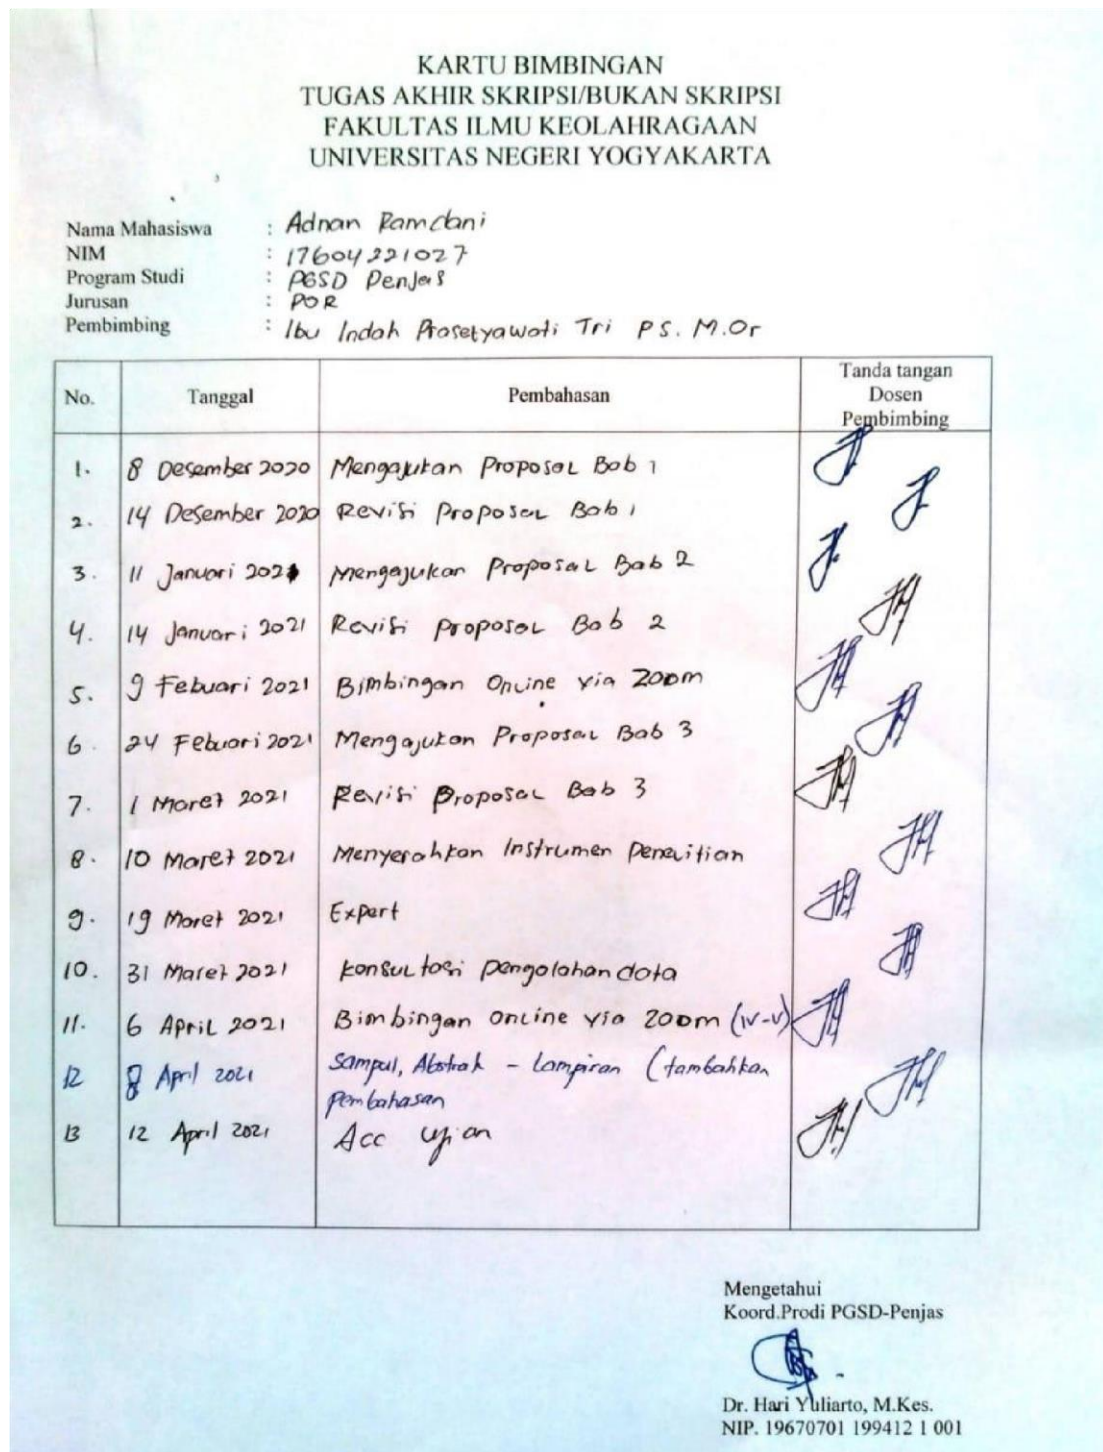 KARTU BIMBINGAN
TUGAS AKHIR SKRIPSI/BUKAN SKRIPSI
FAKULTAS ILMU KEOLAHRAGAAN
UNIVERSITAS NEGERI YOGYAKARTA
Nama Mahasiswa : Adnan Ramdani
NIM : 17604221027
Program Studi : PGSD Penjas
Jurusan : POR
Pembimbing : Ibu Indah Prasetyawati Tri PS. M.Or
No. Tanggal Pembahasan Tanda tangan Dosen Pembimbing
1. 8 Desember 2020 Mengajukan Proposal Bab 1
2. 14 Desember 2020 Revisi Proposal Bab 1
3. 11 Januari 2021 Mengajukan Proposal Bab 2
4. 14 Januari 2021 Revisi Proposal Bab 2
5. 9 Febuari 2021 Bimbingan Online via Zoom
6. 24 Febuari 2021 Mengajukan Proposal Bab 3
7. 1 Maret 2021 Revisi Proposal Bab 3
8. 10 Maret 2021 Menyerahkan Instrumen Penelitian
9. 19 Maret 2021 Expert
10. 31 Maret 2021 Konsultasi Pengolahan data
11. 6 April 2021 Bimbingan Online via Zoom (IV-V)
12 8 April 2021 Sampul, Abstrak - Lampiran (tambahkan
pembahasan
13 12 April 2021 Acc ujian
Mengetahui
Koord.Prodi PGSD-Penjas
Dr. Hari Yuliarto, M.Kes.
NIP. 19670701 199412 1 001